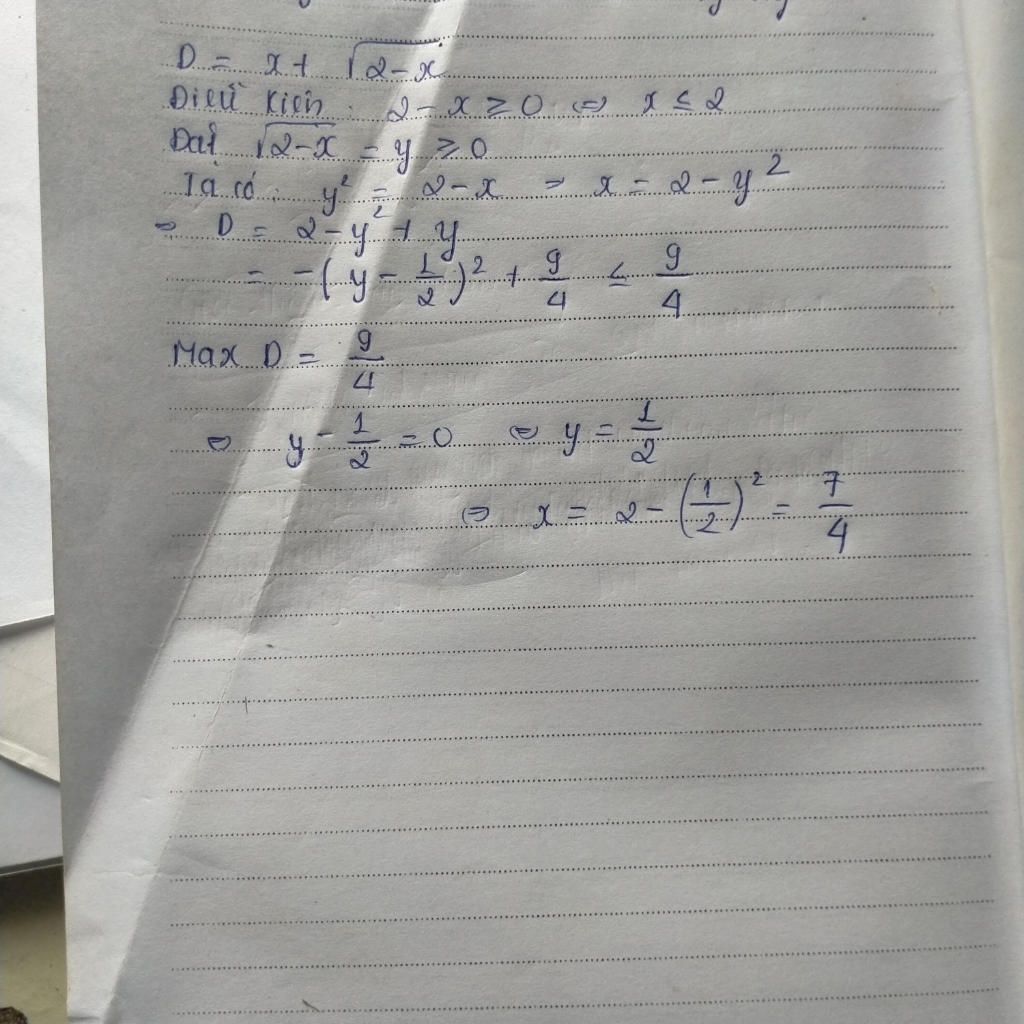 D = x + √(2-x)
Điều kiện : 2 - x ≥ 0 ⇔ x ≤ 2
Đặt √(2-x) = y ≥ 0
Ta có : y² = 2 - x ⇒ x = 2 - y²
⇒ D = 2 - y² + y
= -(y - 1/2)² + 9/4 ≤ 9/4
Max D = 9/4
⇔ y - 1/2 = 0 ⇔ y = 1/2
⇔ x = 2 - (1/2)² = 7/4